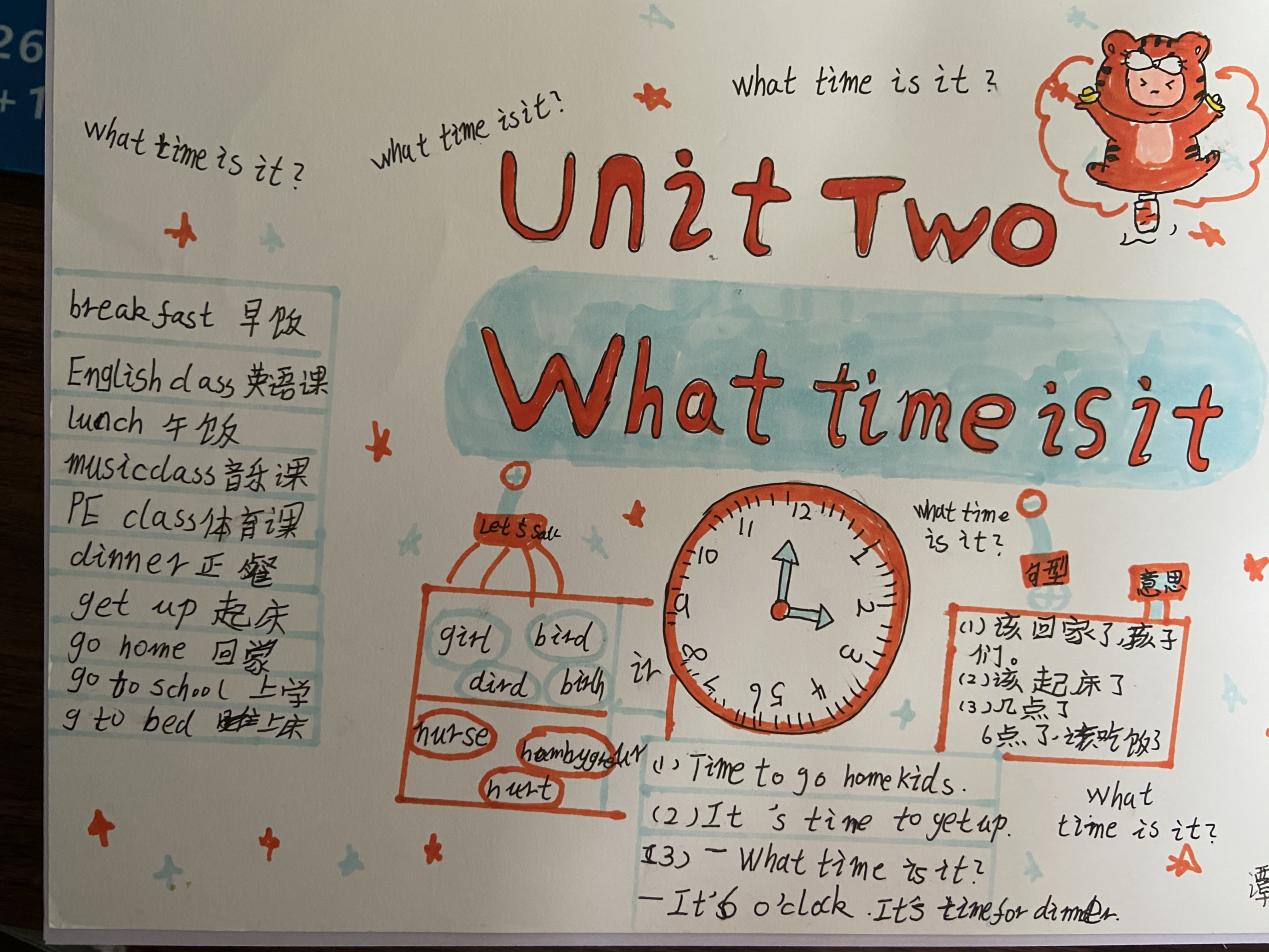 26
+1
What time is it?
what time is it?
what time is it?
Unit Two
What time is it
breakfast 早饭
English class 英语课
lunch 午饭
music class 音乐课
PE class 体育课
dinner 正餐
get up 起床
go home 回家
go to school 上学
g to bed 上床
Let's
girl bird
dird birth
ir
nurse
hurt
12
1
2
3
4
5
6
7
8
9
10
11
what time
is it?
句型
意思
(1) 该回家了,孩子
们。
(2) 该起床了
(3) 几点了
6点了.该吃饭了
(1) Time to go home kids.
(2) It 's time to get up.
(3) — What time is it?
— It's 6 o'clock. It's time for dinner.
What
time is it?
谭